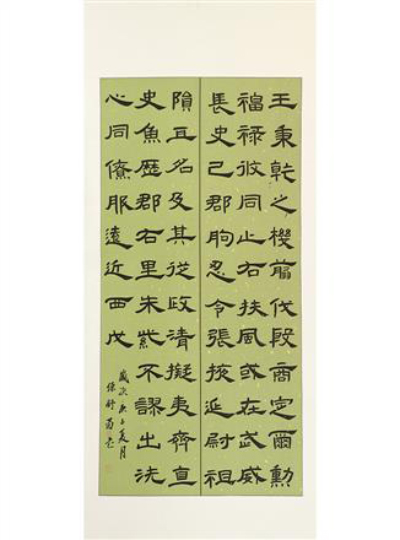 王秉乾之機翦伐殷商定爾勳
福祿攸同止右扶風或在武威
長史巳郡朐忍令張掖延尉祖
隃耳名及其從政清擬夷齊直
史魚歷郡右里朱紫不謬出洗
心同僚服遠近西戊
歲次庚子夏月